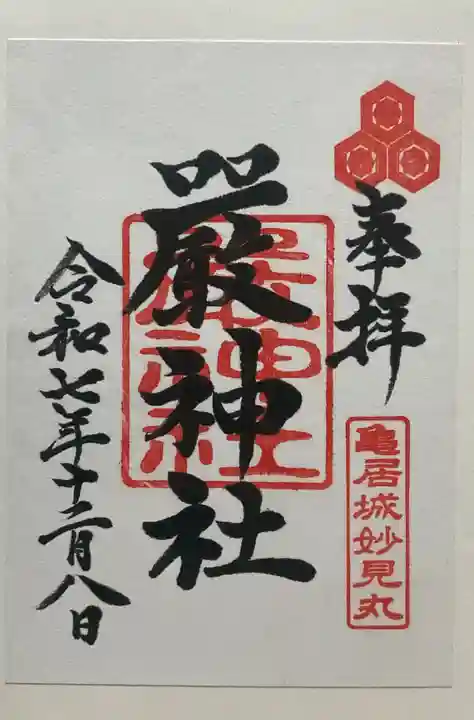 奉拝
亀居城妙見丸
嚴神社
嚴神社
令和七年十二月八日